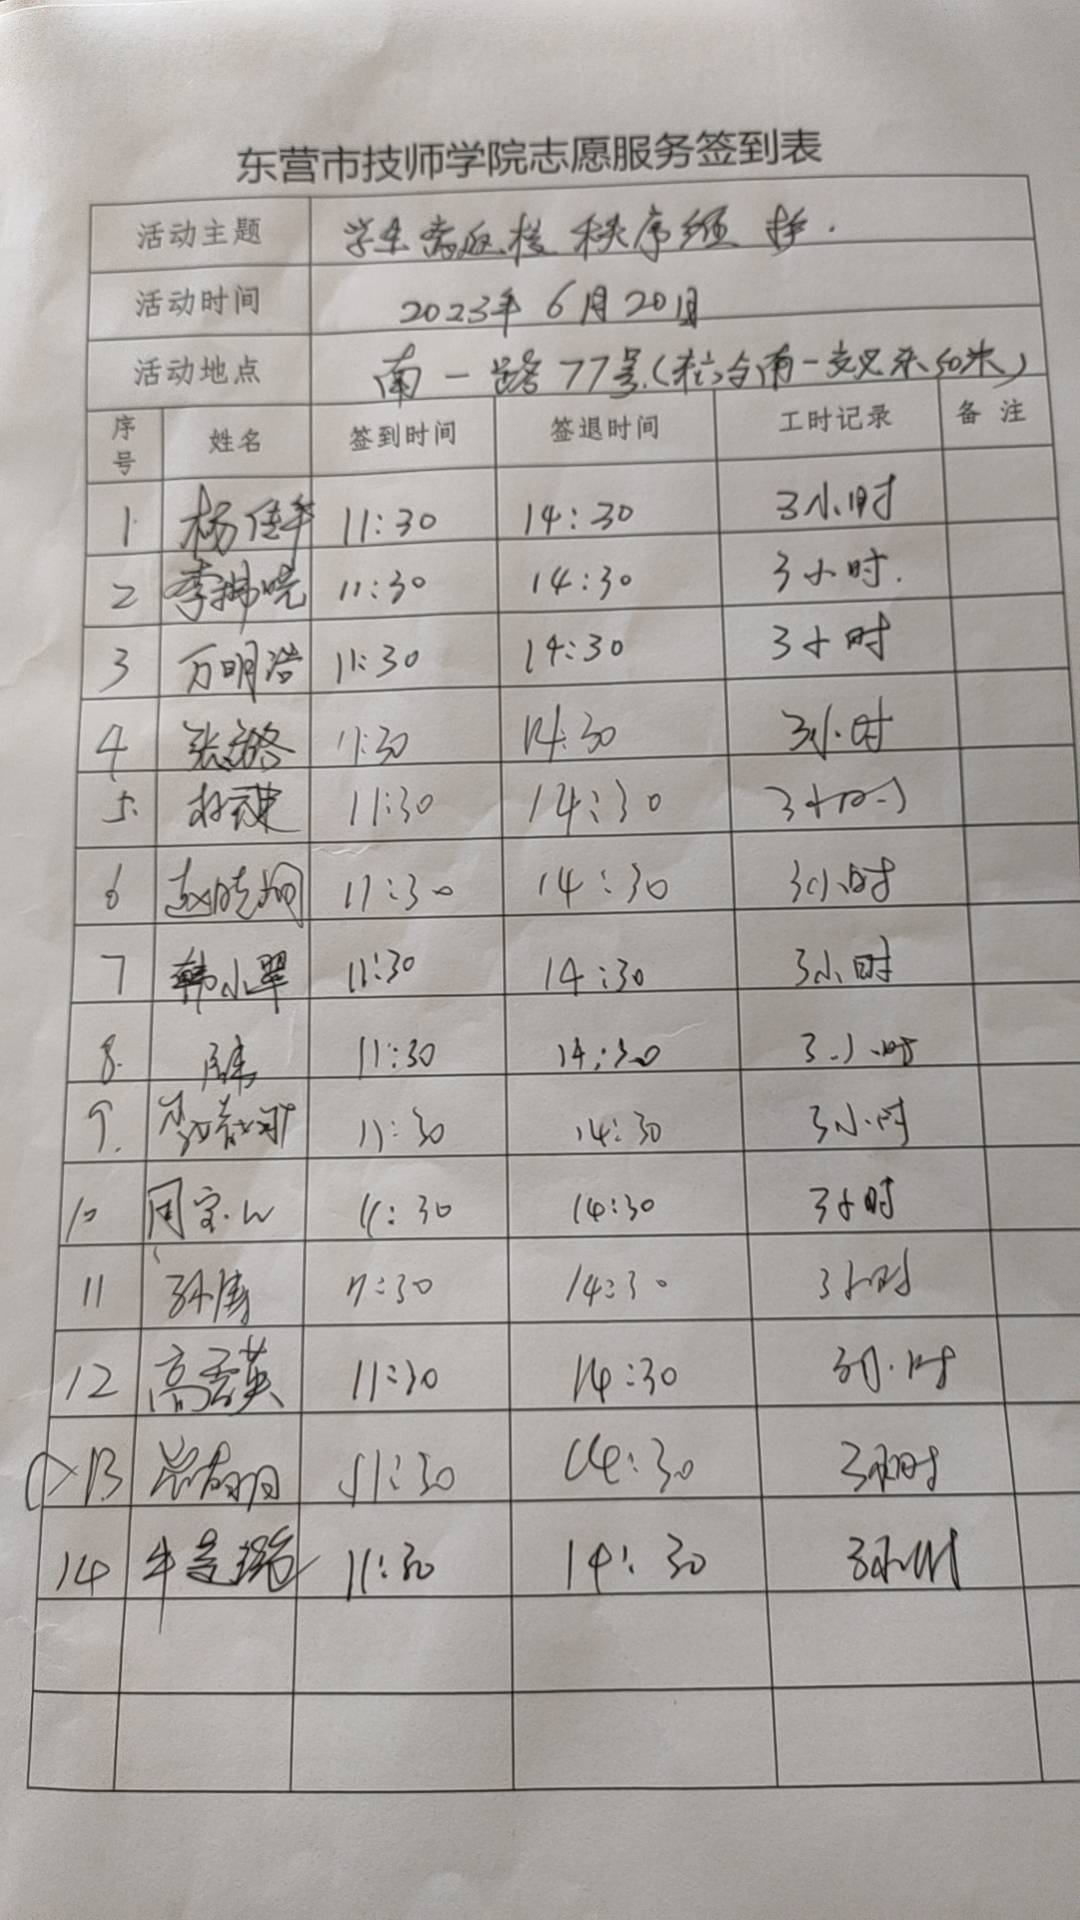 东营市技师学院志愿服务签到表
活动主题 学生 返校 秩序维护.
活动时间 2023年6月20日
活动地点 南一路77号(与南一交叉东50米)
序号 姓名 签到时间 签退时间 工时记录 备注
1. 杨佳 11:30 14:30 3小时
2 李 晓 11:30 14:30 3小时.
3 万明浩 11:30 14:30 3小时
4 张 11:30 14:30 3小时
5. 11:30 14:30 3小时
6 赵晓 11:30 14:30 3小时
7 韩小翠 11:30 14:30 3小时
8. 11:30 14:30 3小时
9. 11:30 14:30 3小时
10 周宝 11:30 14:30 3小时
11 孙 11:30 14:30 3小时
12 高 英 11:30 14:30 3小时
13 11:30 14:30 3小时
14 牛 11:30 14:30 3小时